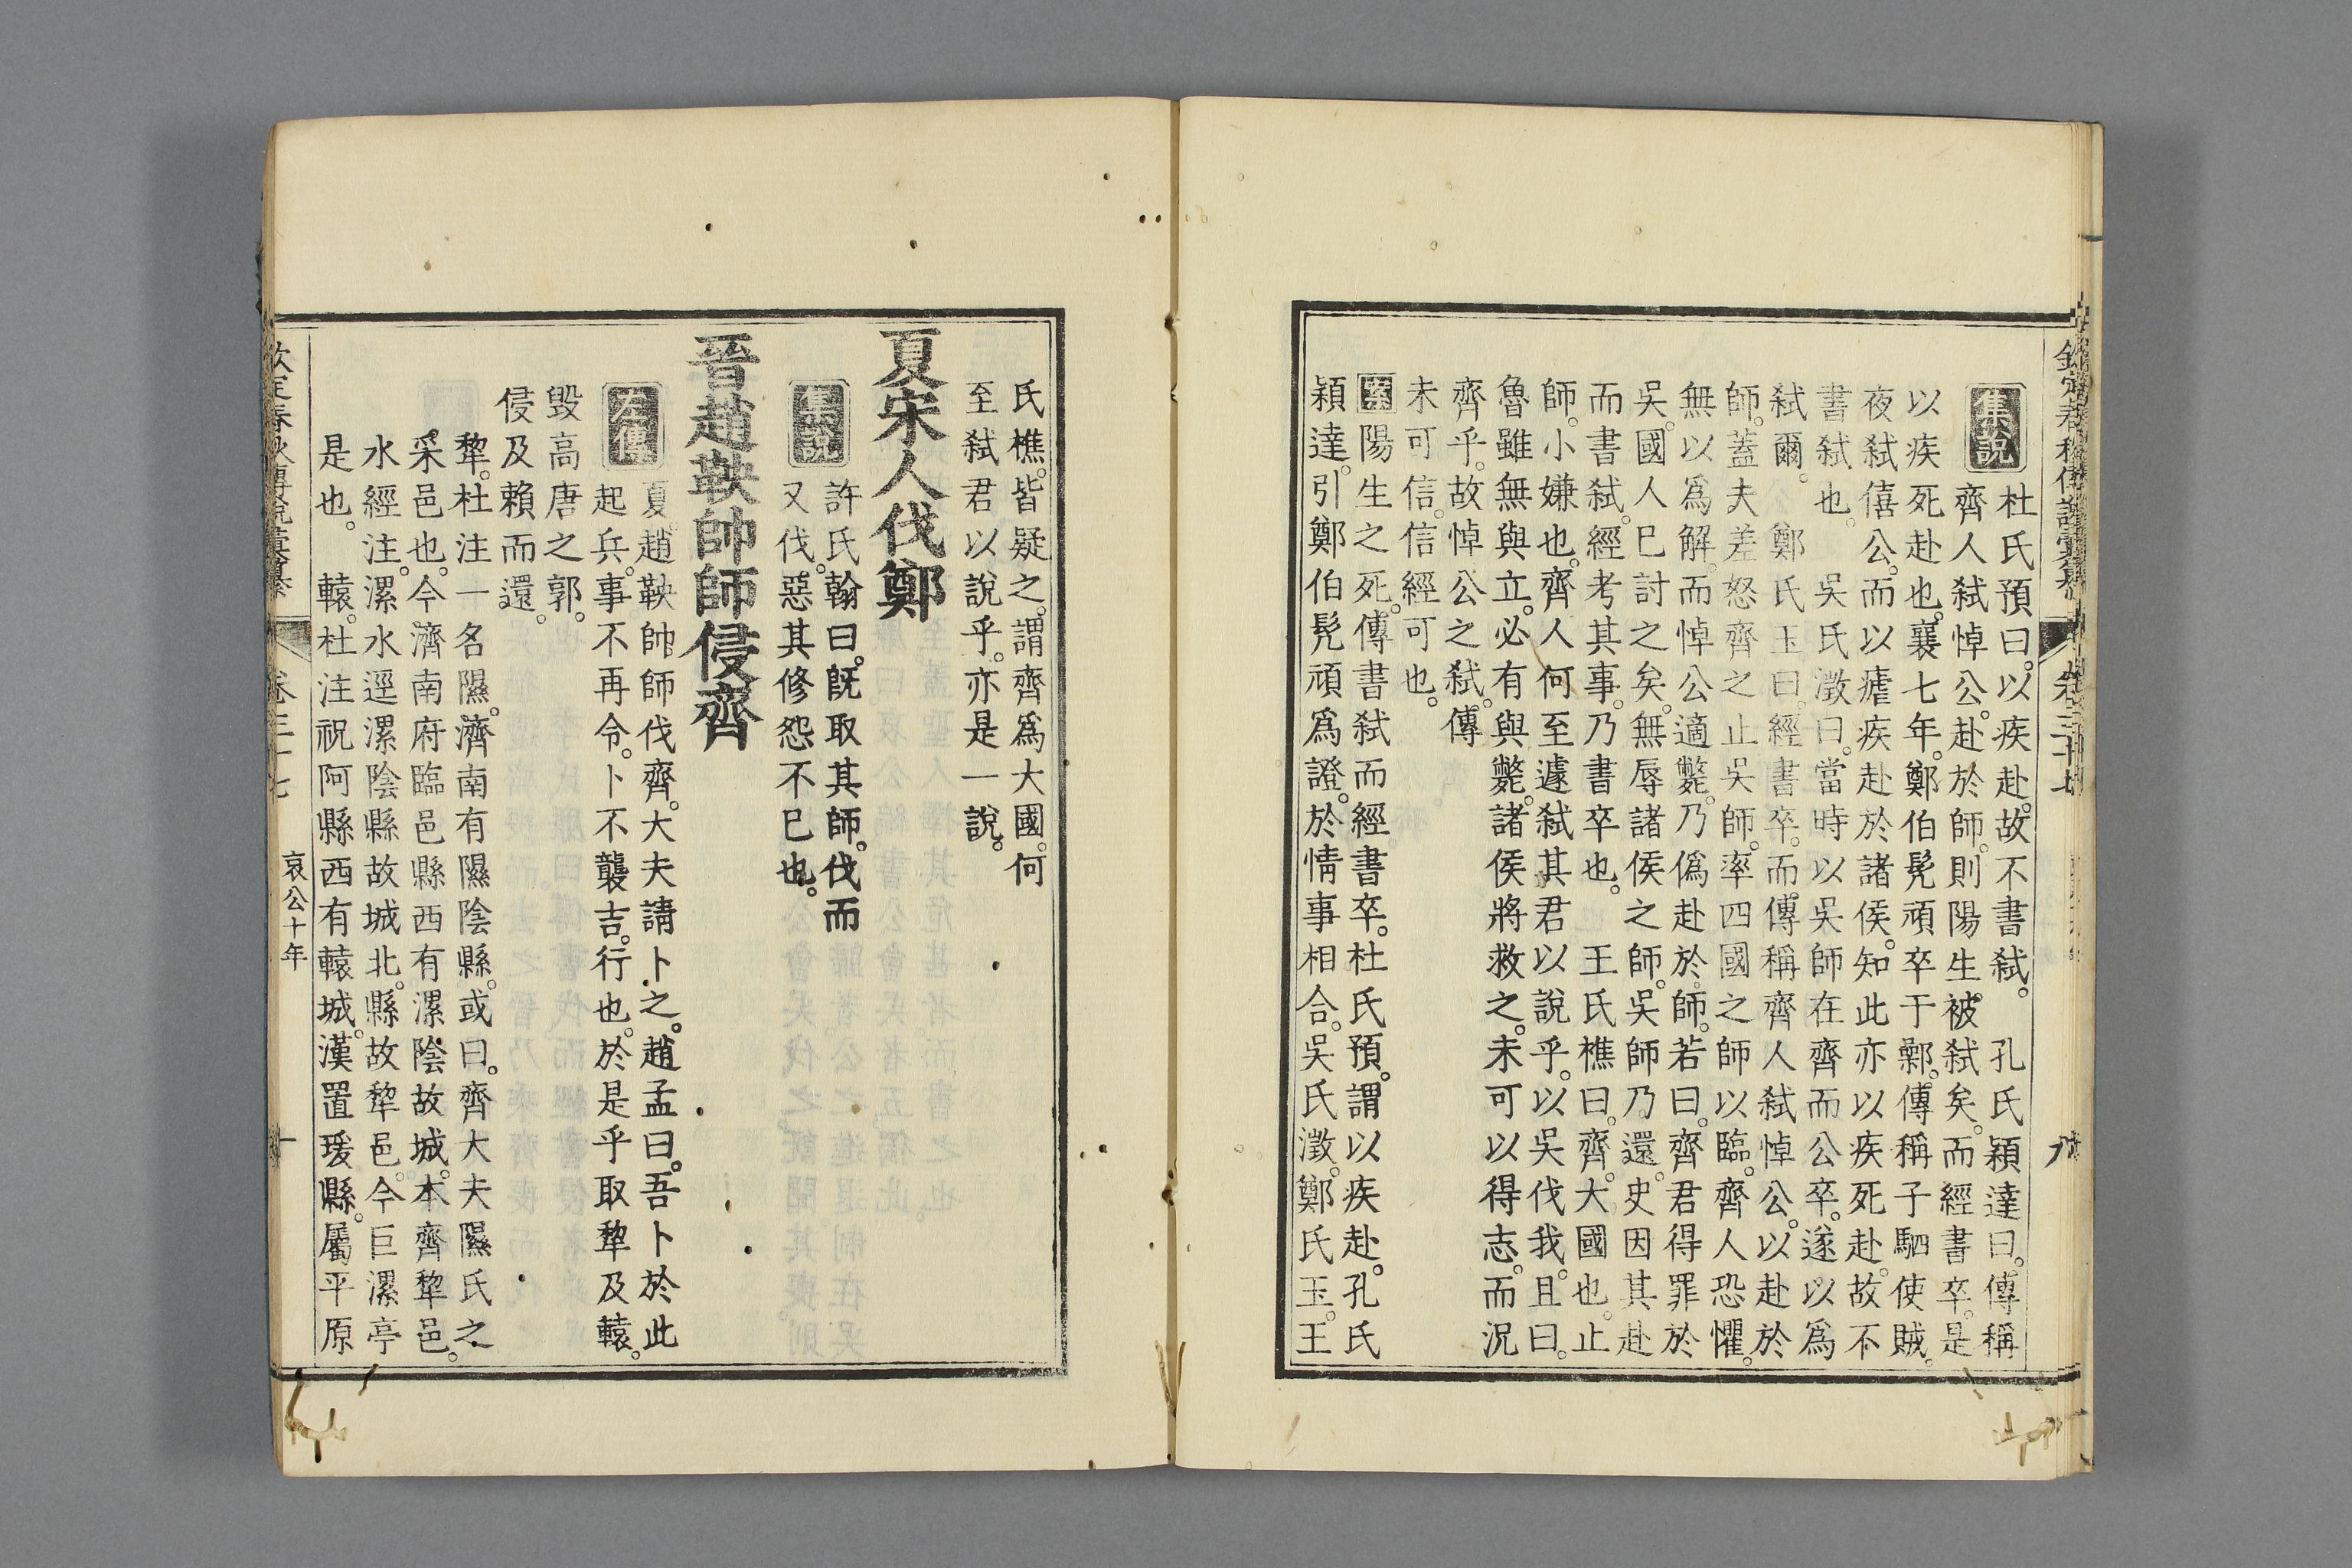 欽定春秋傳說彙纂 卷三十七
集說
杜氏預曰以疾赴故不書弑 孔氏穎達曰傳稱
齊人弑悼公赴於師則陽生被弑矣而經書卒是
以疾死赴也襄七年鄭伯髡頑卒于鄵傳稱子駟使賊
夜弑僖公而以瘧疾赴於諸侯知此亦以疾死赴故不
書弑也 吳氏澂曰當時以吳師在齊而公卒遂以爲
弑爾 鄭氏玉曰經書卒而傳稱齊人弑悼公以赴於
師蓋夫差怒齊之止吳師率四國之師以臨齊人恐懼
無以爲解而悼公適斃乃僞赴於師若曰齊君得罪於
吳國人已討之矣無辱諸侯之師吳師乃還史因其赴
而書弑經考其事乃書卒也 王氏樵曰齊大國也止
師小嫌也齊人何至遽弑其君以說乎以吳伐我且曰
魯雖無與立必有與斃諸侯將救之未可以得志而況
齊乎故悼公之弑傳
未可信信經可也
案陽生之死傳書弑而經書卒杜氏預謂以疾赴孔氏
穎達引鄭伯髡頑爲證於情事相合吳氏澂鄭氏玉王
氏樵皆疑之謂齊爲大國何
至弑君以說乎亦是一說
夏宋人伐鄭
集說
許氏翰曰旣取其師伐而
又伐惡其修怨不已也
晉趙鞅帥師侵齊
左傳
夏趙鞅帥師伐齊大夫請卜之趙孟曰吾卜於此
起兵事不再令卜不襲吉行也於是乎取犂及轅
毀高唐之郭
侵及賴而還
犂杜注一名隰濟南有隰陰縣或曰齊大夫隰氏之
采邑也今濟南府臨邑縣西有漯陰故城本齊犂邑
水經注漯水逕漯陰縣故城北縣故犂邑今巨漯亭
是也 轅杜注祝阿縣西有轅城漢置瑗縣屬平原
欽定春秋傳說彙纂 卷三十七 哀公十年